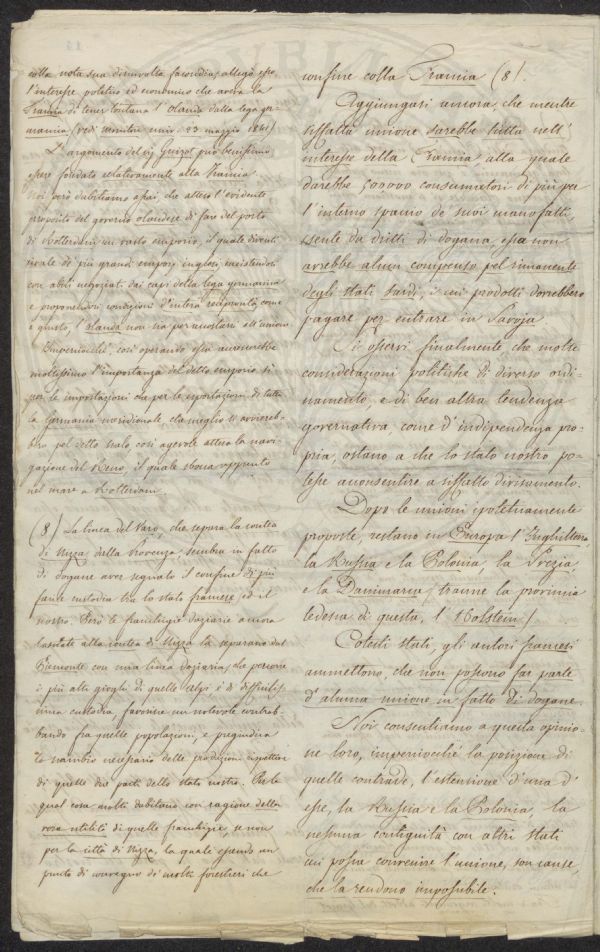 colla nota sua disinvolta facondia, allegò esse
l'interesse politico ed economico che aveva la
Francia di tener lontana l'Olanda dalla lega ger-
manica (vedi moniteur univ. 23 maggio 1841)
L'argomento del sig Guizot può benissimo
essere fondato relativamente alla Francia
noi però dubitiamo assai, che atteso l'evidente
proposito del governo olandese di fare del porto
di Rotterdam un vasto emporio, il quale diventi
rivale di più grandi empory inglesi, insistendosi
con abili negoziati dai capi della lega germanica
e proponendosi condizioni d'intera reciprocità come
è giusto, l'Olanda non sia per accostarsi ad unione
Imperciocchè, così operando essa accrescerebbe
moltissimo l'importanza del detto emporio sì
per le importazioni che per le esportazioni di tutta
la Germania meridionale, che meglio si avvierebbero
pel detto scalo, così agevole attesa la navi-
gazione del Reno, il quale sbocca appunto
nel mare a Rotterdam.
(8) La linea del Varo, che separa la contea
di Nizza dalla Provenza, sembra in fatto
di dogane aver segnato il confine di più
facile custodia tra lo stato francese ed il
nostro. Però le franchigie daziarie ancora
lasciate alla contea di Nizza la separano dal
Piemonte con una linea daziaria, che percorre
i più alti gioghi di quelle alpi e di difficilis-
sima custodia favorisce un notevole contrab-
bando fra quelle popolazioni, e pregiudica
lo scambio necessario delle produzioni rispettive
di quelle due parti dello stato nostro. Per la
qual cosa molti dubitano con ragione della
vera utilità di quelle franchigie se non
per la città di Nizza, la quale essendo un
punto di convegno di molti forestieri che
confine colla Francia (8).
Aggiungasi ancora, che mentre
siffatta unione sarebbe tutta nell'
interesse della Francia, alla quale
darebbe 500000 consumatori di più per
l'interno spaccio de' suoi manofatti,
esente da dritti di dogana, essa non
avrebbe alcun compenso pel rimanente
degli stati sardi, i cui prodotti dovrebbero
pagare per entrare in Savoja
Si osservi finalmente che molte
considerazioni politiche di diverso ordi-
namento, e di ben altra tendenza
governativa, come d'indipendenza pro-
pria, ostano a che lo stato nostro po-
tesse acconsentire a siffatto divisamento.
Dopo le unioni ipoteticamente
proposte, restano in Europa l'Inghilterra
la Russia e la Polonia, la Svezia,
e la Danimarca, (tranne la provincia
tedesca di questa, l'Holstein)
Cotesti stati, gli autori francesi
ammettono, che non possono far parte
d'alcuna unione in fatto di dogane.
Noi consentiamo a questa opinio-
ne loro, imperciocchè la posizione di
quelle contrade, l'estensione d'una d'
esse, la Russia e la Polonia, la
nessuna contiguità con altri stati
cui possa convenire l'unione, son cause,
che la rendono impossibile.